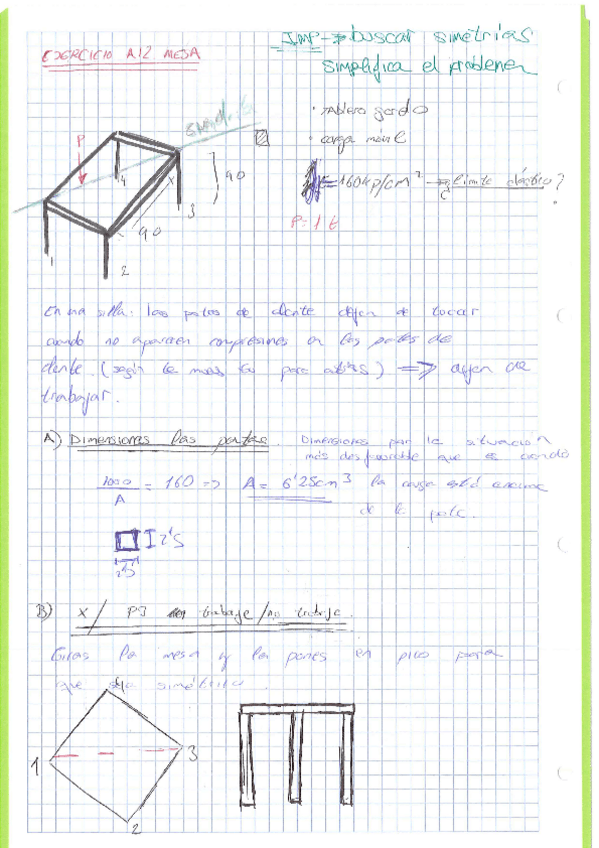 IMP → buscar simetrías
EJERCICIO A12 MESA
simplifica el problema
simetría
• TABLERO gordo
P
• carga móvil
4
90
3
= 160 kp/cm² → límite elástico?
P = 1 t
x
90
1
2
En una silla: las patas de delante dejan de tocar
cuando no aparecen compresiones en las patas de
delante. (según te para atrás) ⇒ dejan de
trabajar.
A) Dimensiones las patas. Dimensiones por la situación
más desfavorable que es cuando
1000/A = 160 => A = 6'25cm³ la carga está encima
de la pata.
2'5
2'5
B) x/ P3 trabaje/no trabaje.
Giras la mesa y la pones en pico para
que sea simétrico.
4
1
3
2